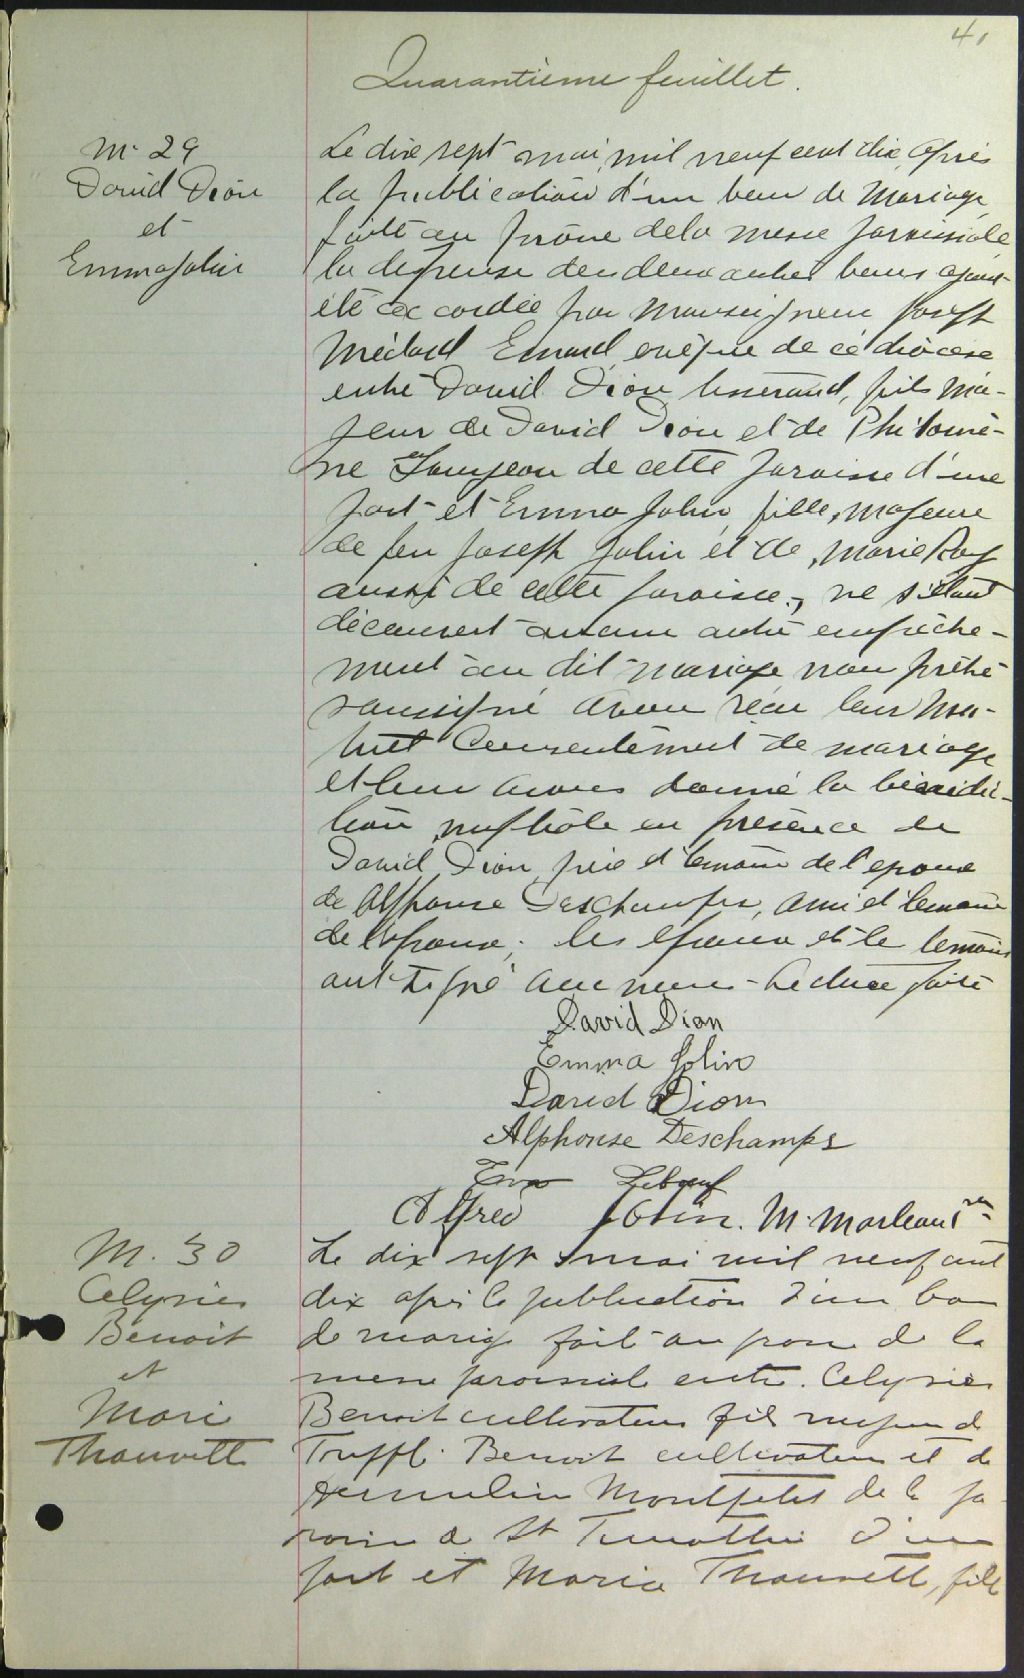 41
Quarantième feuillet.
M. 29
David Dion
et
Emma Jolin
Le dix sept mai mil neuf cent dix après
la publication d'un banc de Mariage
faite au prône de la messe paroissiale
la dispense des deux autres bancs ayant
été accordée par Monseigneur Joseph
Médard Emard évêque de ce diocèse
entre David Dion tisserand, fils ma-
jeur de David Dion et de Philomè-
ne de cette paroisse d'une
part et Emma Jolin, fille, majeure
de feu Joseph Jolin et de, Marie Roy
aussi de cette paroisse, ne s'étant
découvert aucun autre empêche-
ment au dit mariage nous prêtre
soussigné avons reçu leur mu-
tuel Consentement de mariage
et leur avons donné la bénédic-
tion nuptiale en présence de
David Dion, père et témoin de l'époux
de Alphonse Deschamps, ami et témoin
de l'épouse; les époux et le témoins
ont signé avec nous - Lecture faite
David Dion
Emma Jolin
David Dion
Alphonse Deschamps
Eva Leboeuf
Alfred Jolin. M. Marleau
M. 30
Celyries
Benoit
et
Mari
Thauvette
Le dix sept mai mil neuf cent
dix après la publication d'un ban
de mariage fait au prone de la
messe paroissiale entre. Celyries
Benoit cultivateur fils majeur de
Treffl. Benoit cultivateur et de
Montpetit de la pa
roisse de St Timothée d'une
part et Maria Thauvette, fille